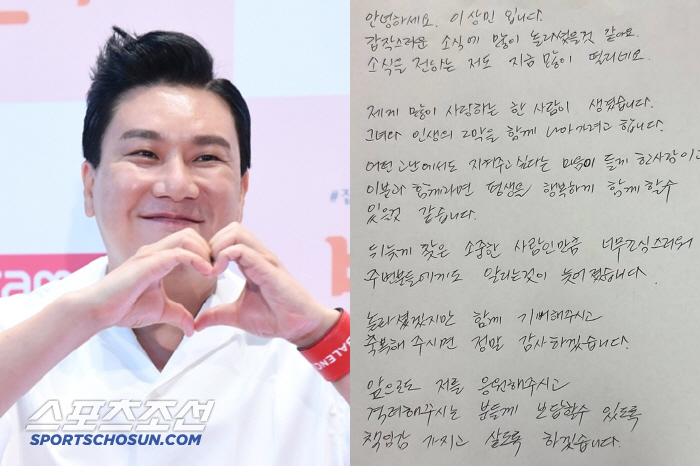 #
ram
BALENC
스포츠조선
SPORTSCHOSUN.COM
안녕하세요. 이상민 입니다.
갑작스러운 소식에 많이 놀라셨을것 같아요.
소식을 전하는 저도 지금 많이 떨리네요.
제게 많이 사랑하는 한 사람이 생겼습니다.
그녀와 인생의 2막을 함께 나아가려고 합니다.
어떤 고난에서도 지켜주고 싶다는 마음이 들게 한 사람이고
이분과 함께라면 평생을 행복하게 함께 할수
있을것 같습니다.
뒤늦게 찾은 소중한 사람인만큼 너무 조심스러워
주변분들에게도 알리는것이 늦어졌습니다.
놀라셨겠지만 함께 기뻐해주시고
축복해 주시면 정말 감사하겠습니다.
앞으로도 저를 응원해주시고
격려해주시는 분들께 보답할수 있도록
책임감 가지고 살도록 하겠습니다.